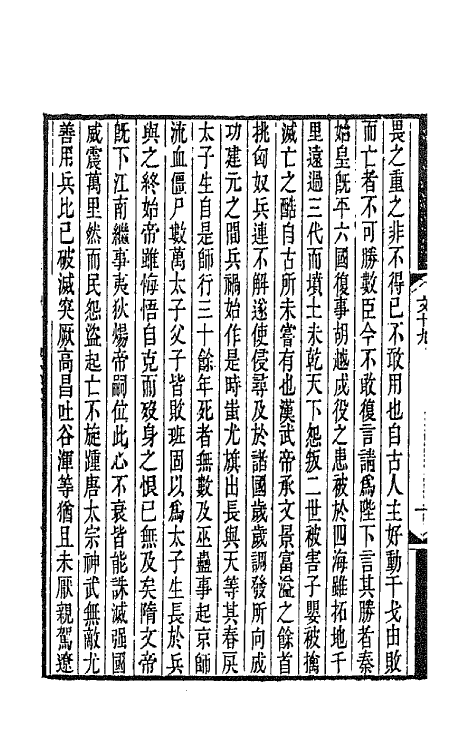 畏之重之非不得已不敢用也自古人主好動干戈由敗
而亡者不可勝數臣今不敢復言請爲陛下言其勝者秦
始皇旣平六國復事胡越戍役之患被於四海雖拓地千
里遠過三代而墳土未乾天下怨叛二世被害子嬰被擒
滅亡之酷自古所未嘗有也漢武帝承文景富溢之餘首
挑匈奴兵連不解遂使侵尋及於諸國歲歲調發所向成
功建元之間兵禍始作是時蚩尤旗出長與天等其春戾
太子生自是師行三十餘年死者無數及巫蠱事起京師
流血僵尸數萬太子父子皆敗班固以爲太子生長於兵
與之終始帝雖悔悟自克而歿身之恨已無及矣隋文帝
旣下江南繼事夷狄煬帝嗣位此心不衰皆能誅滅强國
威震萬里然而民怨盜起亡不旋踵唐太宗神武無敵尤
善用兵比已破滅突厥高昌吐谷渾等猶且未厭親駕遼